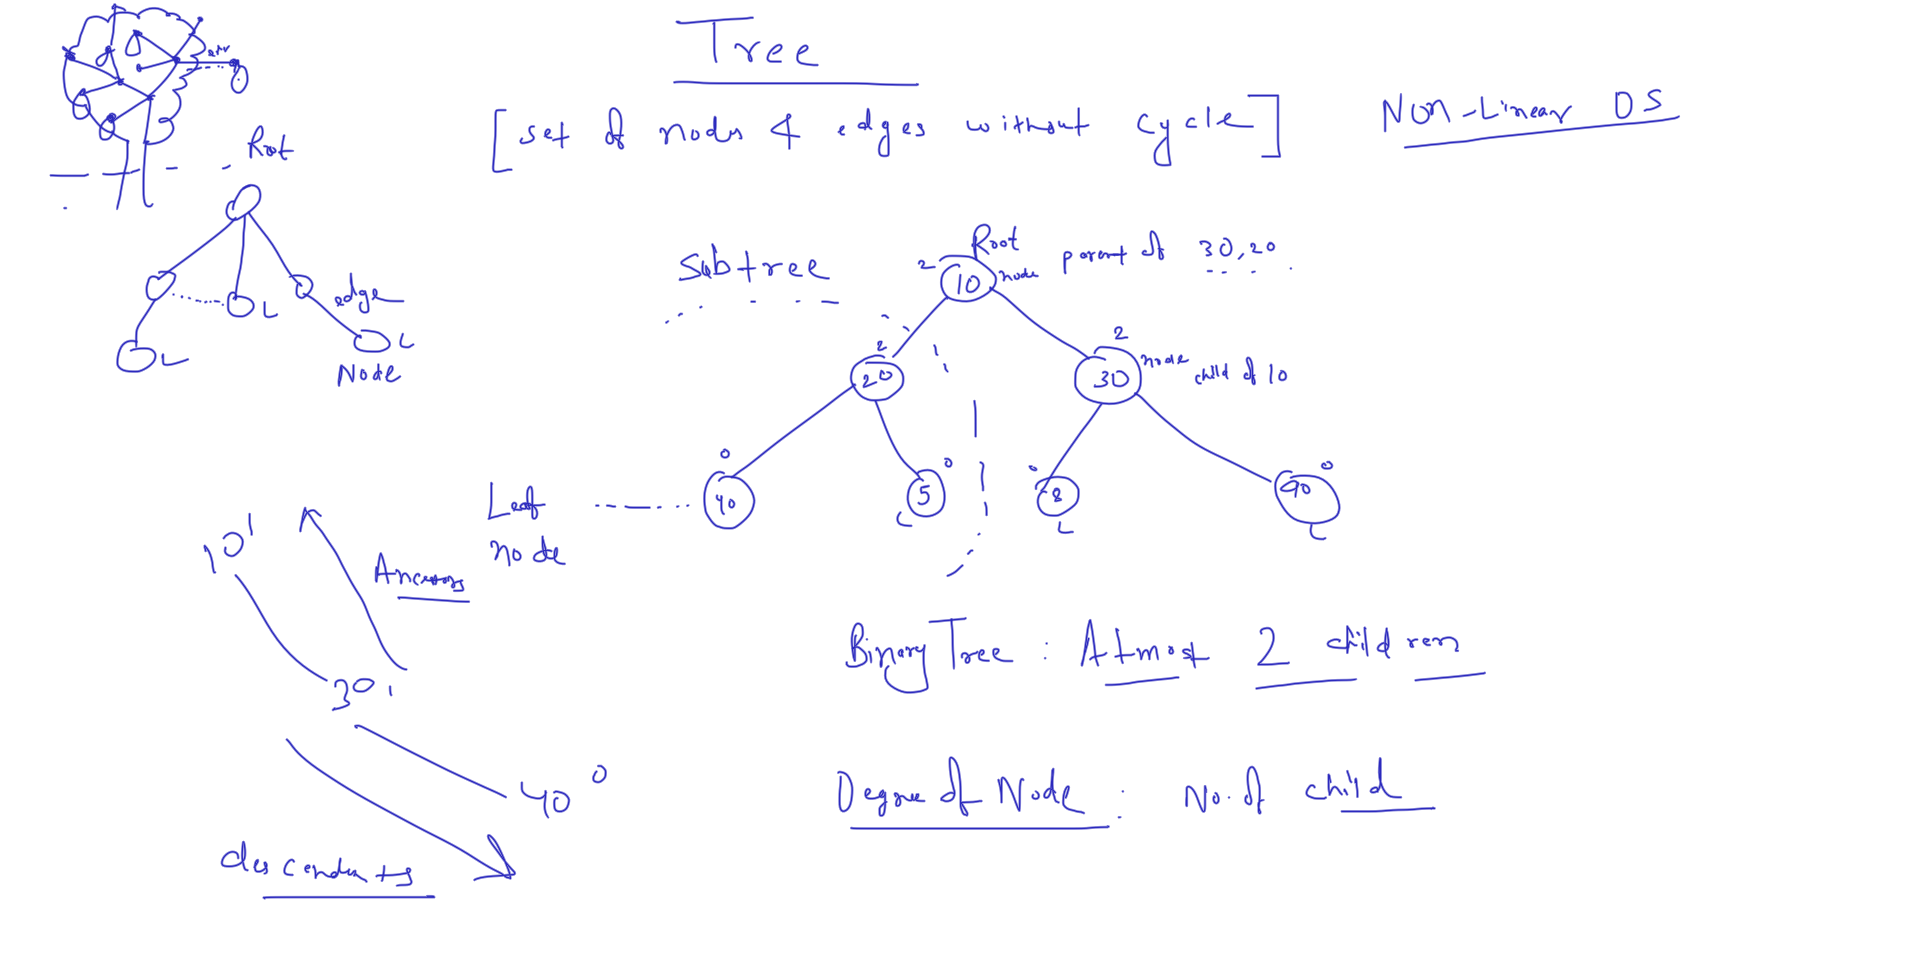 Tree
[set of nodes & edges without cycle]
Non-Linear DS
Root
edge
L
L
L
Node
Subtree
Root
node
parent of 30,20
2
10
2
20
2
30
node
child of 10
0
40
0
5
L
0
8
L
0
90
L
Leaf
node
10 1
Ancestors
30 1
40 0
descendants
Binary Tree : Atmost 2 children
Degree of Node : No. of child